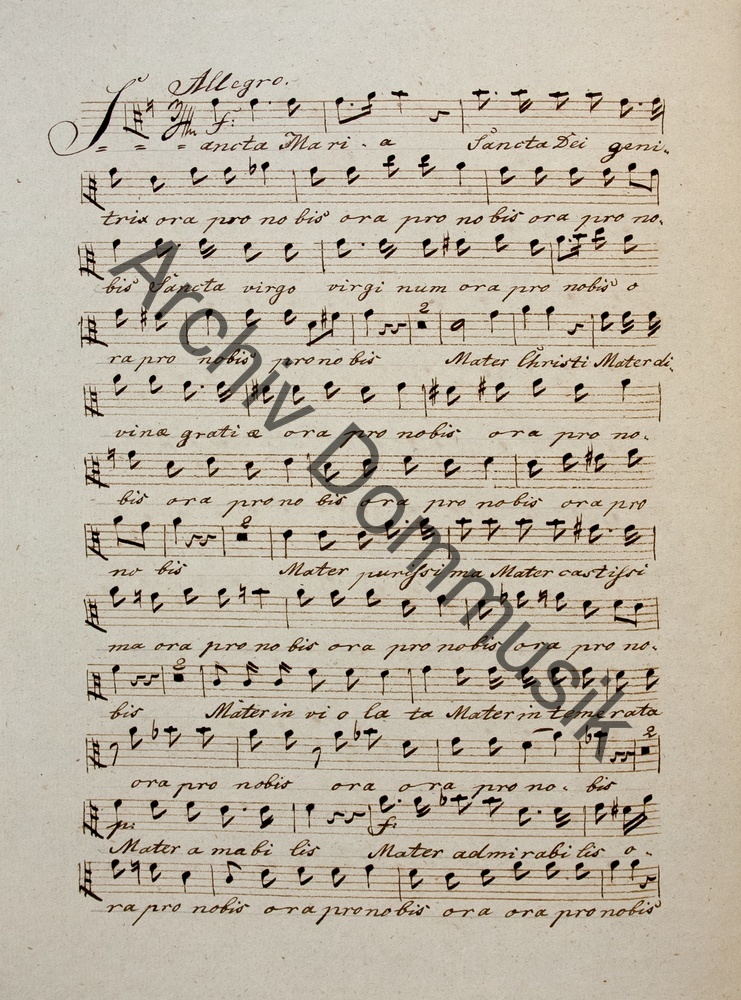 Allegro.
S = = = ancta Mari - a Sancta Dei geni-
f:
trix ora pro no bis ora pro no bis ora pro no.
bis Sancta virgo virgi num ora pro nobis o
2
ra pro nobis pro no bis Mater Christi Mater di.
vinæ grati æ ora pro nobis ora pro no.
bis ora pro no bis ora pro nobis ora pro
2
no bis Mater purissi ma Mater castissi
ma ora pro no bis ora pro nobis ora pro no.
2
bis Mater in vi o la ta Mater in temerata
2
ora pro nobis ora ora pro no. bis
p: f:
Mater a mabi lis Mater admirabi lis o -
ra pro nobis ora pro nobis ora ora pro nobis
Archiv Dommusik